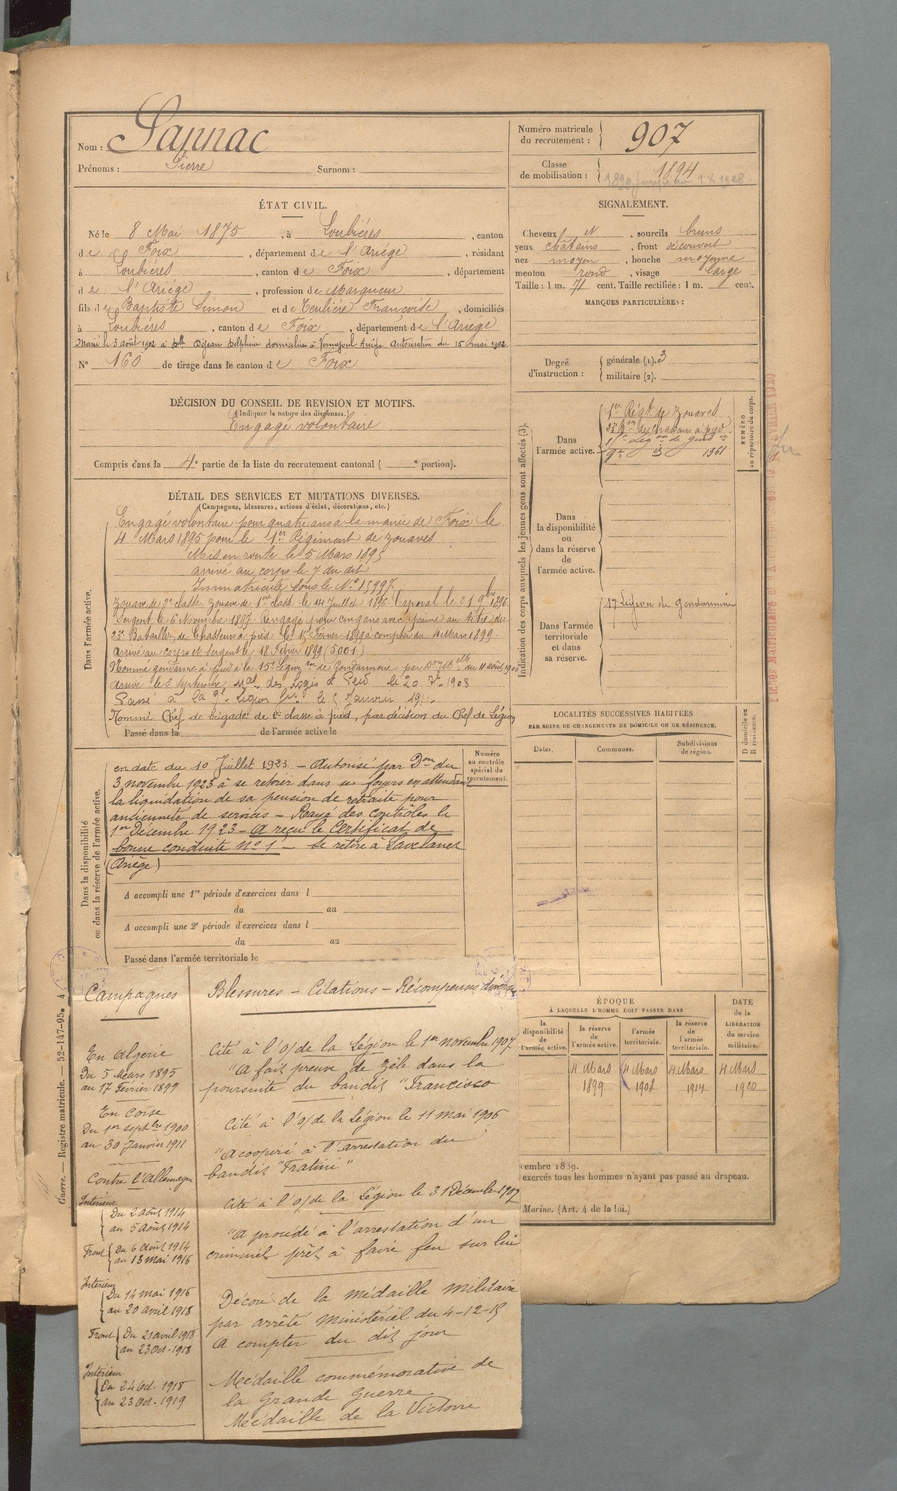 Nom : Sannac
Prénoms : Pierre Surnom :
Numéro matricule du recrutement : 907
Classe de mobilisation : 1894
ÉTAT CIVIL.
Né le 8 Mai 1875, à Loubières, canton
de Foix, département de l'Ariège, résidant
à Loubières, canton de Foix, département
de l'Ariège, profession de Marqueur
fils de Baptiste Simon et de Françoise, domiciliés
à Loubières, canton de Foix, département de l'Ariège
Marié le 3 août 1902 à Delphine domiciliée à autorisation du 15 mai 1902
N° 160 de tirage dans le canton de Foix
SIGNALEMENT.
Cheveux N, sourcils bruns
yeux châtains, front découvert
nez moyen, bouche moyenne
menton rond, visage large
Taille : 1 m. 71 cent. Taille rectifiée : 1 m. cent.
MARQUES PARTICULIÈRES :
Degré d'instruction : générale (1). 3
militaire (2).
DÉCISION DU CONSEIL DE REVISION ET MOTIFS.
(Indiquer la nature des dispenses.)
Engagé volontaire
Compris dans la 4e partie de la liste du recrutement cantonal ( e portion).
Indication des corps auxquels les jeunes gens sont affectés (3).
Dans l'armée active.
1er Régt de Zouaves
1961
NUMÉRO au répertoire du corps.
Dans la disponibilité ou dans la réserve de l'armée active.
Dans l'armée territoriale et dans sa réserve.
17 Légion de Gendarmerie
DÉTAIL DES SERVICES ET MUTATIONS DIVERSES.
(Campagnes, blessures, actions d'éclat, décorations, etc.)
Dans l'armée active.
Engagé volontaire pour quatre ans à la mairie de Foix le
4 Mars 1895 pour le 1er Régiment de Zouaves
Mis en route le 5 Mars 1895
arrivé au corps le 7 du dit
Immatriculé sous le N° 15997
Zouave de 2e classe Zouave de 1ère classe le 14 Juillet 1896 Caporal le 21 9bre 1896
Sergent le 6 Novembre 1897 Rengagé pour cinq ans avec prime au titre du
Bataillon de Chasseurs à pied le Février 1899 à compter du 4 Mars 1899
Arrivé au corps et Sergent le 18 Février 1899
Nommé gendarme à pied à la 15e Légion de Gendarmerie par du 11 août 1900
Arrivé le 2 Septembre, Mal des Logis à Pied le 20 1908
Passé à la Légion le Janvier
Nommé Chef de brigade de 2e classe à pied, par décision du Chef de Légion
Passé dans la de l'armée active le
Dans la disponibilité ou dans la réserve de l'armée active.
en date du 10 Juillet 1923 - Autorisé par Don du
3 novembre 1923 à se retirer dans ses foyers en attendant
la liquidation de sa pension de retraite pour
ancienneté de services - Rayé des contrôles le
1er Décembre 1923 - A reçu le Certificat de
bonne conduite n° 1 - se retire à Lavelanet
(Ariège)
Numéro au contrôle spécial du recrutement.
A accompli une 1re période d'exercices dans l
du au
A accompli une 2e période d'exercices dans l
du au
Passé dans l'armée territoriale le
LOCALITÉS SUCCESSIVES HABITÉES
PAR SUITE DE CHANGEMENTS DE DOMICILE OU DE RÉSIDENCE.
Dates. Communes. Subdivisions de région. D domicile ou R résidence.
ÉPOQUE
À LAQUELLE L'HOMME DOIT PASSER DANS
la disponibilité de l'armée active. la réserve de l'armée active. l'armée territoriale. la réserve de l'armée territoriale.
DATE de la LIBÉRATION du service militaire.
4 Mars 1899 4 Mars 1908 4 Mars 1914 4 Mars 1920
cembre 1889.
exercés tous les hommes n'ayant pas passé au drapeau.
Marine. (Art. 4 de la loi.)
Guerre. — Registre matricule. — 52-147-95.
Campagnes
En Algérie
Du 5 Mars 1895
au 17 Février 1899
En Corse
Du 1er septbre 1900
au 30 Janvier 1911
Contre l'Allemagne
Intérieur
Du 2 août 1914
au 5 Août 1914
Front
Du 6 Août 1914
au 13 mai 1916
Intérieur
Du 14 mai 1916
au 20 avril 1918
Front
Du 21 avril 1918
au 23 Oct. 1918
Intérieur
Du 24 Oct. 1918
au 23 Oct. 1919
Blessures - Citations - Récompenses diverses
Cité à l'O/ de la Légion le 1er novembre 1907
"A fait preuve de zèle dans la
poursuite du bandit "Francisco
Cité à l'O/ de la Légion le 11 mai 1906
"A coopéré à l'arrestation du
bandit "Fratini"
Cité à l'O/ de la Légion le 31 Décembre 1907
"A procédé à l'arrestation d'un
criminel prêt à faire feu sur lui
Décoré de la médaille militaire
par arrêté ministériel du 4-12-15
A compter du dit jour
Médaille commémorative de
la Grande Guerre
Médaille de la Victoire